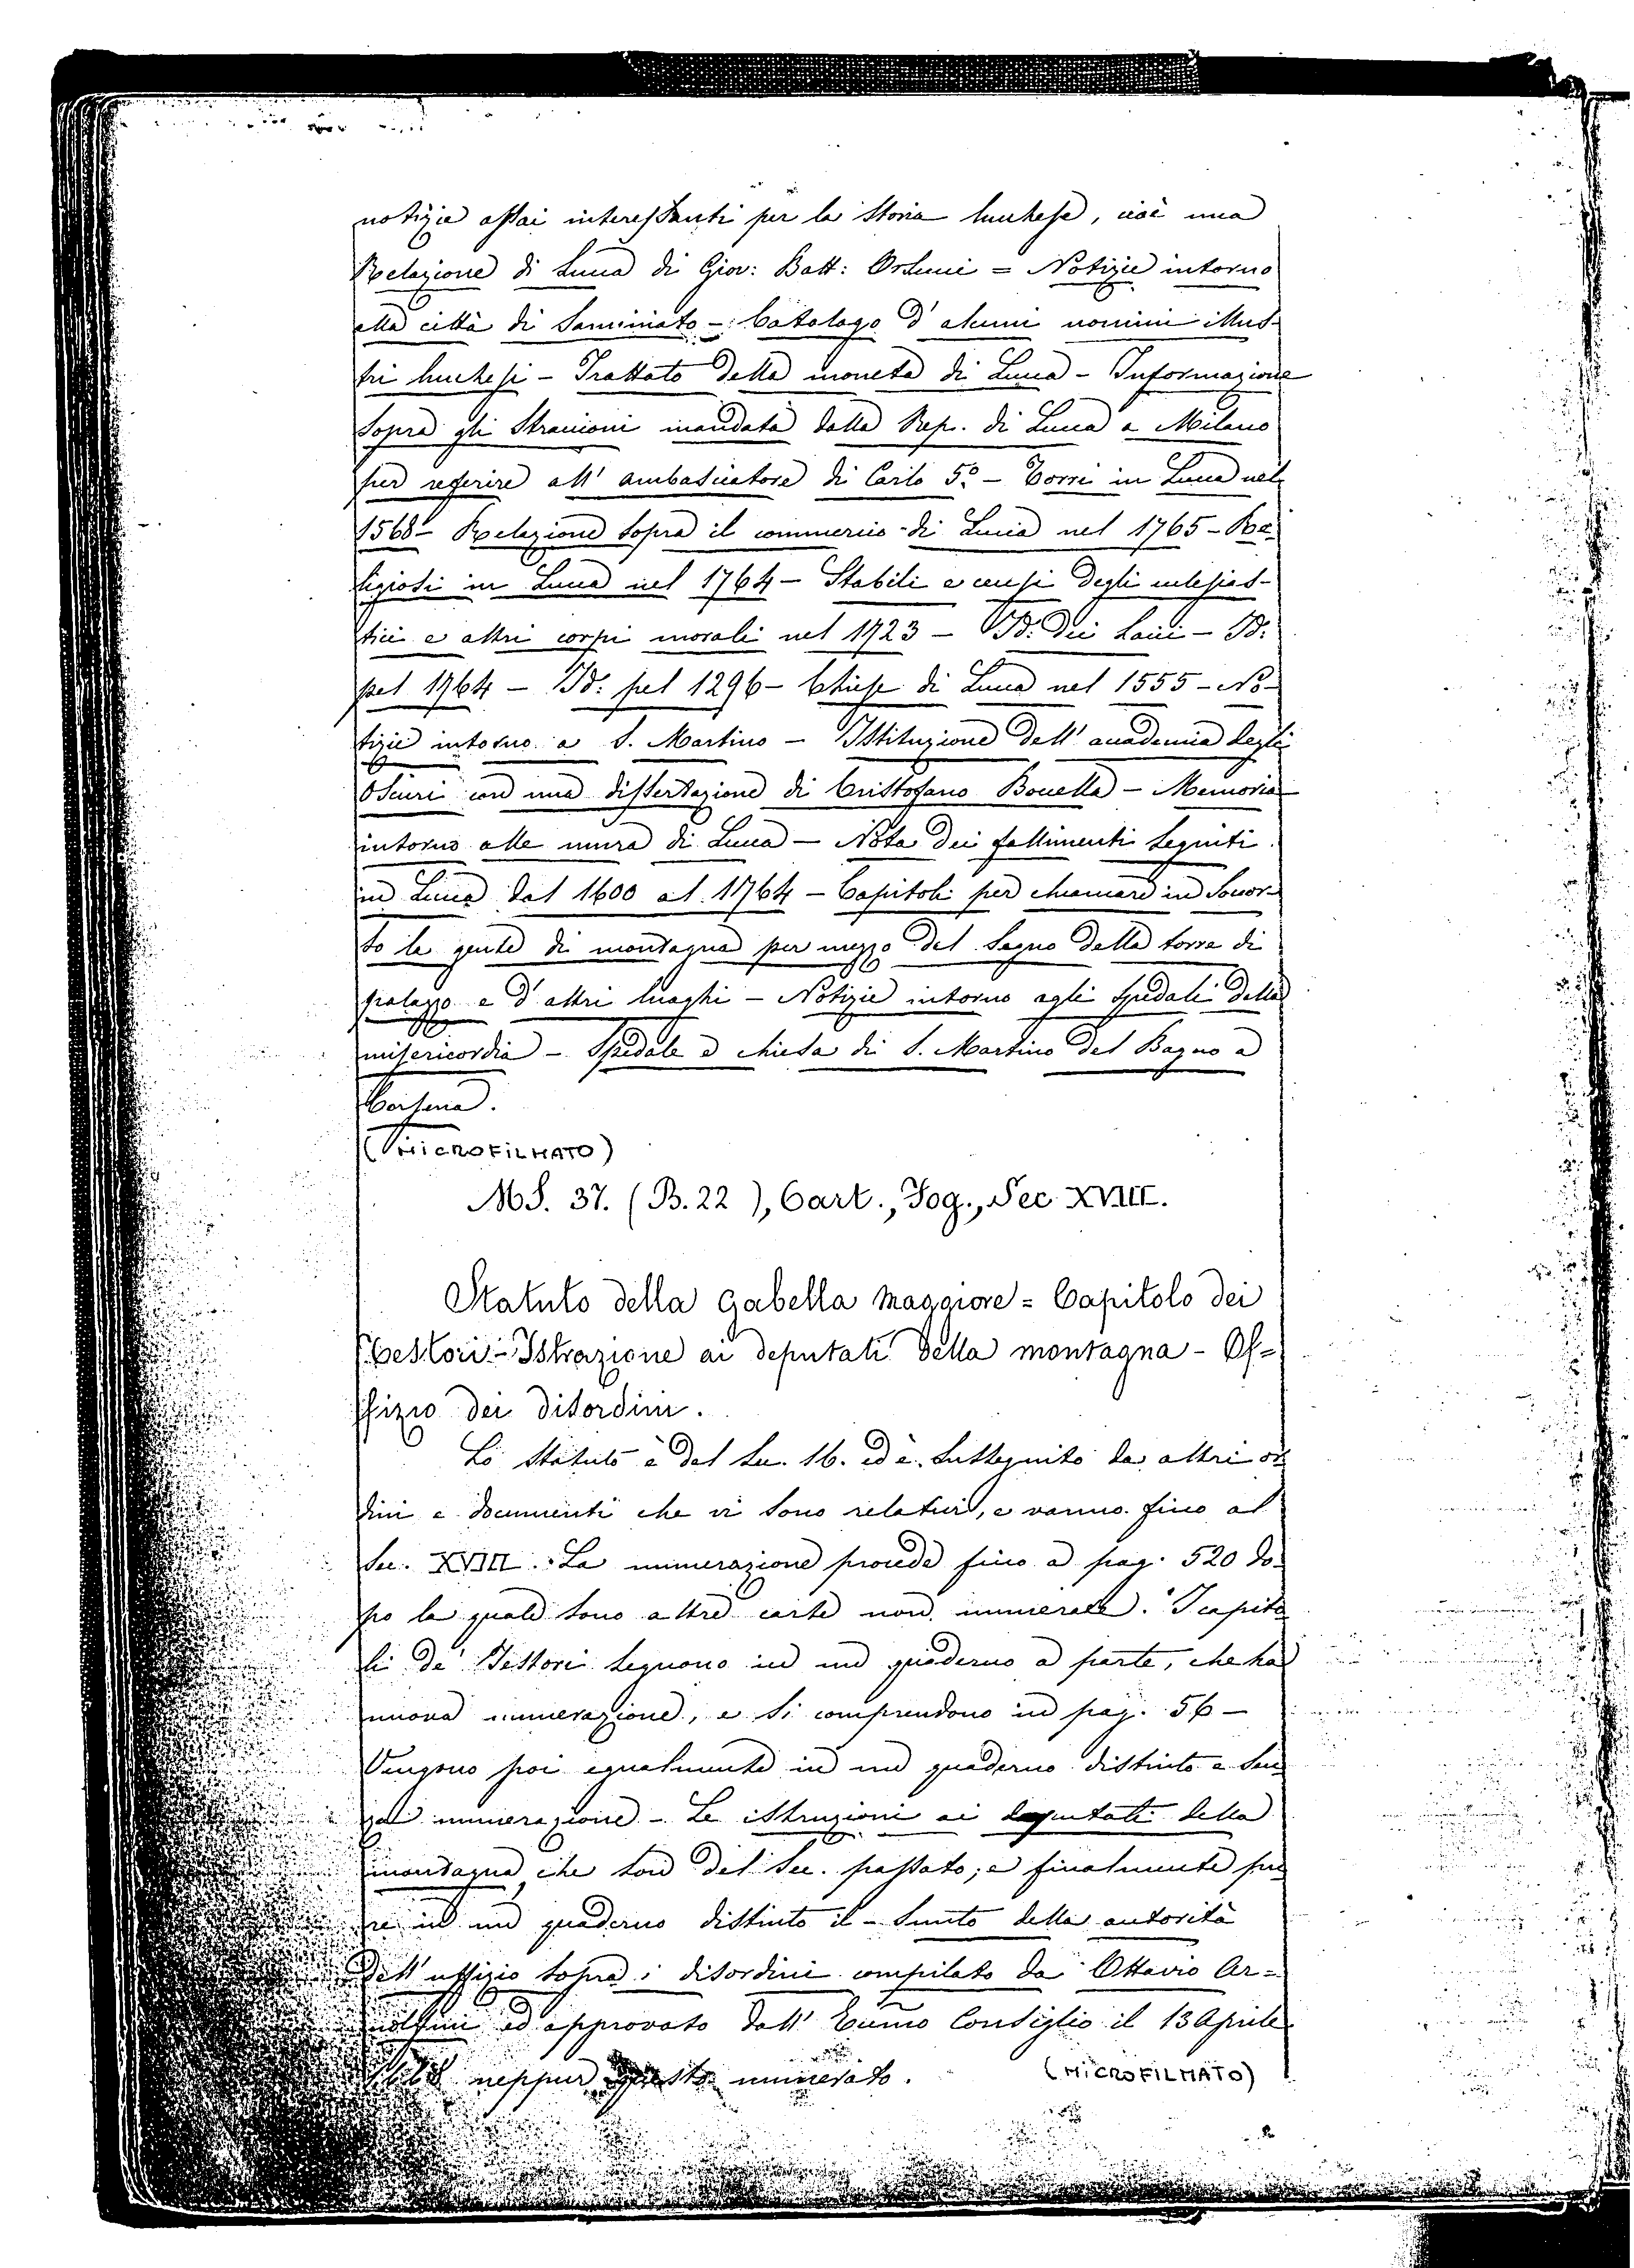 notizie assai interessanti per la Storia lucchese, cioè una
Relazione di Lucca di Giov: Batt: Orsucci = Notizie intorno
alla città di Saminiato - Catologo d'alcuni uomini illus-
tri lucchesi - Trattato della moneta di Lucca - Informazione
sopra gli Straccioni mandata dalla Rep. di Lucca a Milano
per referire all' ambasciatore di Carlo 5.º - Torri in Lucca nel
1568 - Relazione sopra il commercio di Lucca nel 1765 - Re-
ligiosi in Lucca nel 1764 - Stabili e censi degli eclesias-
tici e altri corpi morali nel 1723 - Id: dei Laici - Id:
pel 1764 - Id: pel 1296 - Chiese di Lucca nel 1555 - No-
tizie intorno a S. Martino - Istituzione dell' accademia degli
Oscuri con una dissertazione di Cristofano Bonella - Memoria
intorno alle mura di Lucca - Nota dei fallimenti seguiti
in Lucca dal 1600 al 1764 - Capitoli per chiamare in soccor-
so la gente di montagna per mezzo del segno della torre di
palazzo e d'altri luoghi - Notizie intorno agli spedali della
misericordia - Spedale e chiesa di S. Martino del Bagno a
Corsena.
(MICROFILMATO)
MS. 37. (B. 22), Cart., Fog., Sec XVIII.
Statuto della gabella maggiore = Capitolo dei
Testori - Istrazione ai deputati della montagna - Of=
fizio dei disordini.
Lo Statuto è del Sec. 16. ed è susseguito da altri or
dini e documenti che vi sono relativi, e vanno fino al
Sec. XVIII. La numerazione procede fino a pag. 520 do-
po la quale sono altre carte non numerate. I capito
li de' Testori seguono in un quaderno a parte, che ha
nuova numerazione, e si comprendono in pag. 56 -
Vengono poi egualmente in un quaderno distinto e sen
za numerazione - Le istruzioni ai deputati della
montagna, che son del Sec. passato; e finalmente pu
re in un quaderno distinto il - Sunto della autorità
dell' uffizio sopra i disordini compilato da Ottavio Ar=
nolfini ed approvato dall' Ecc̃mo Consiglio il 13 Aprile
neppur questo numerato. (MICROFILMATO)